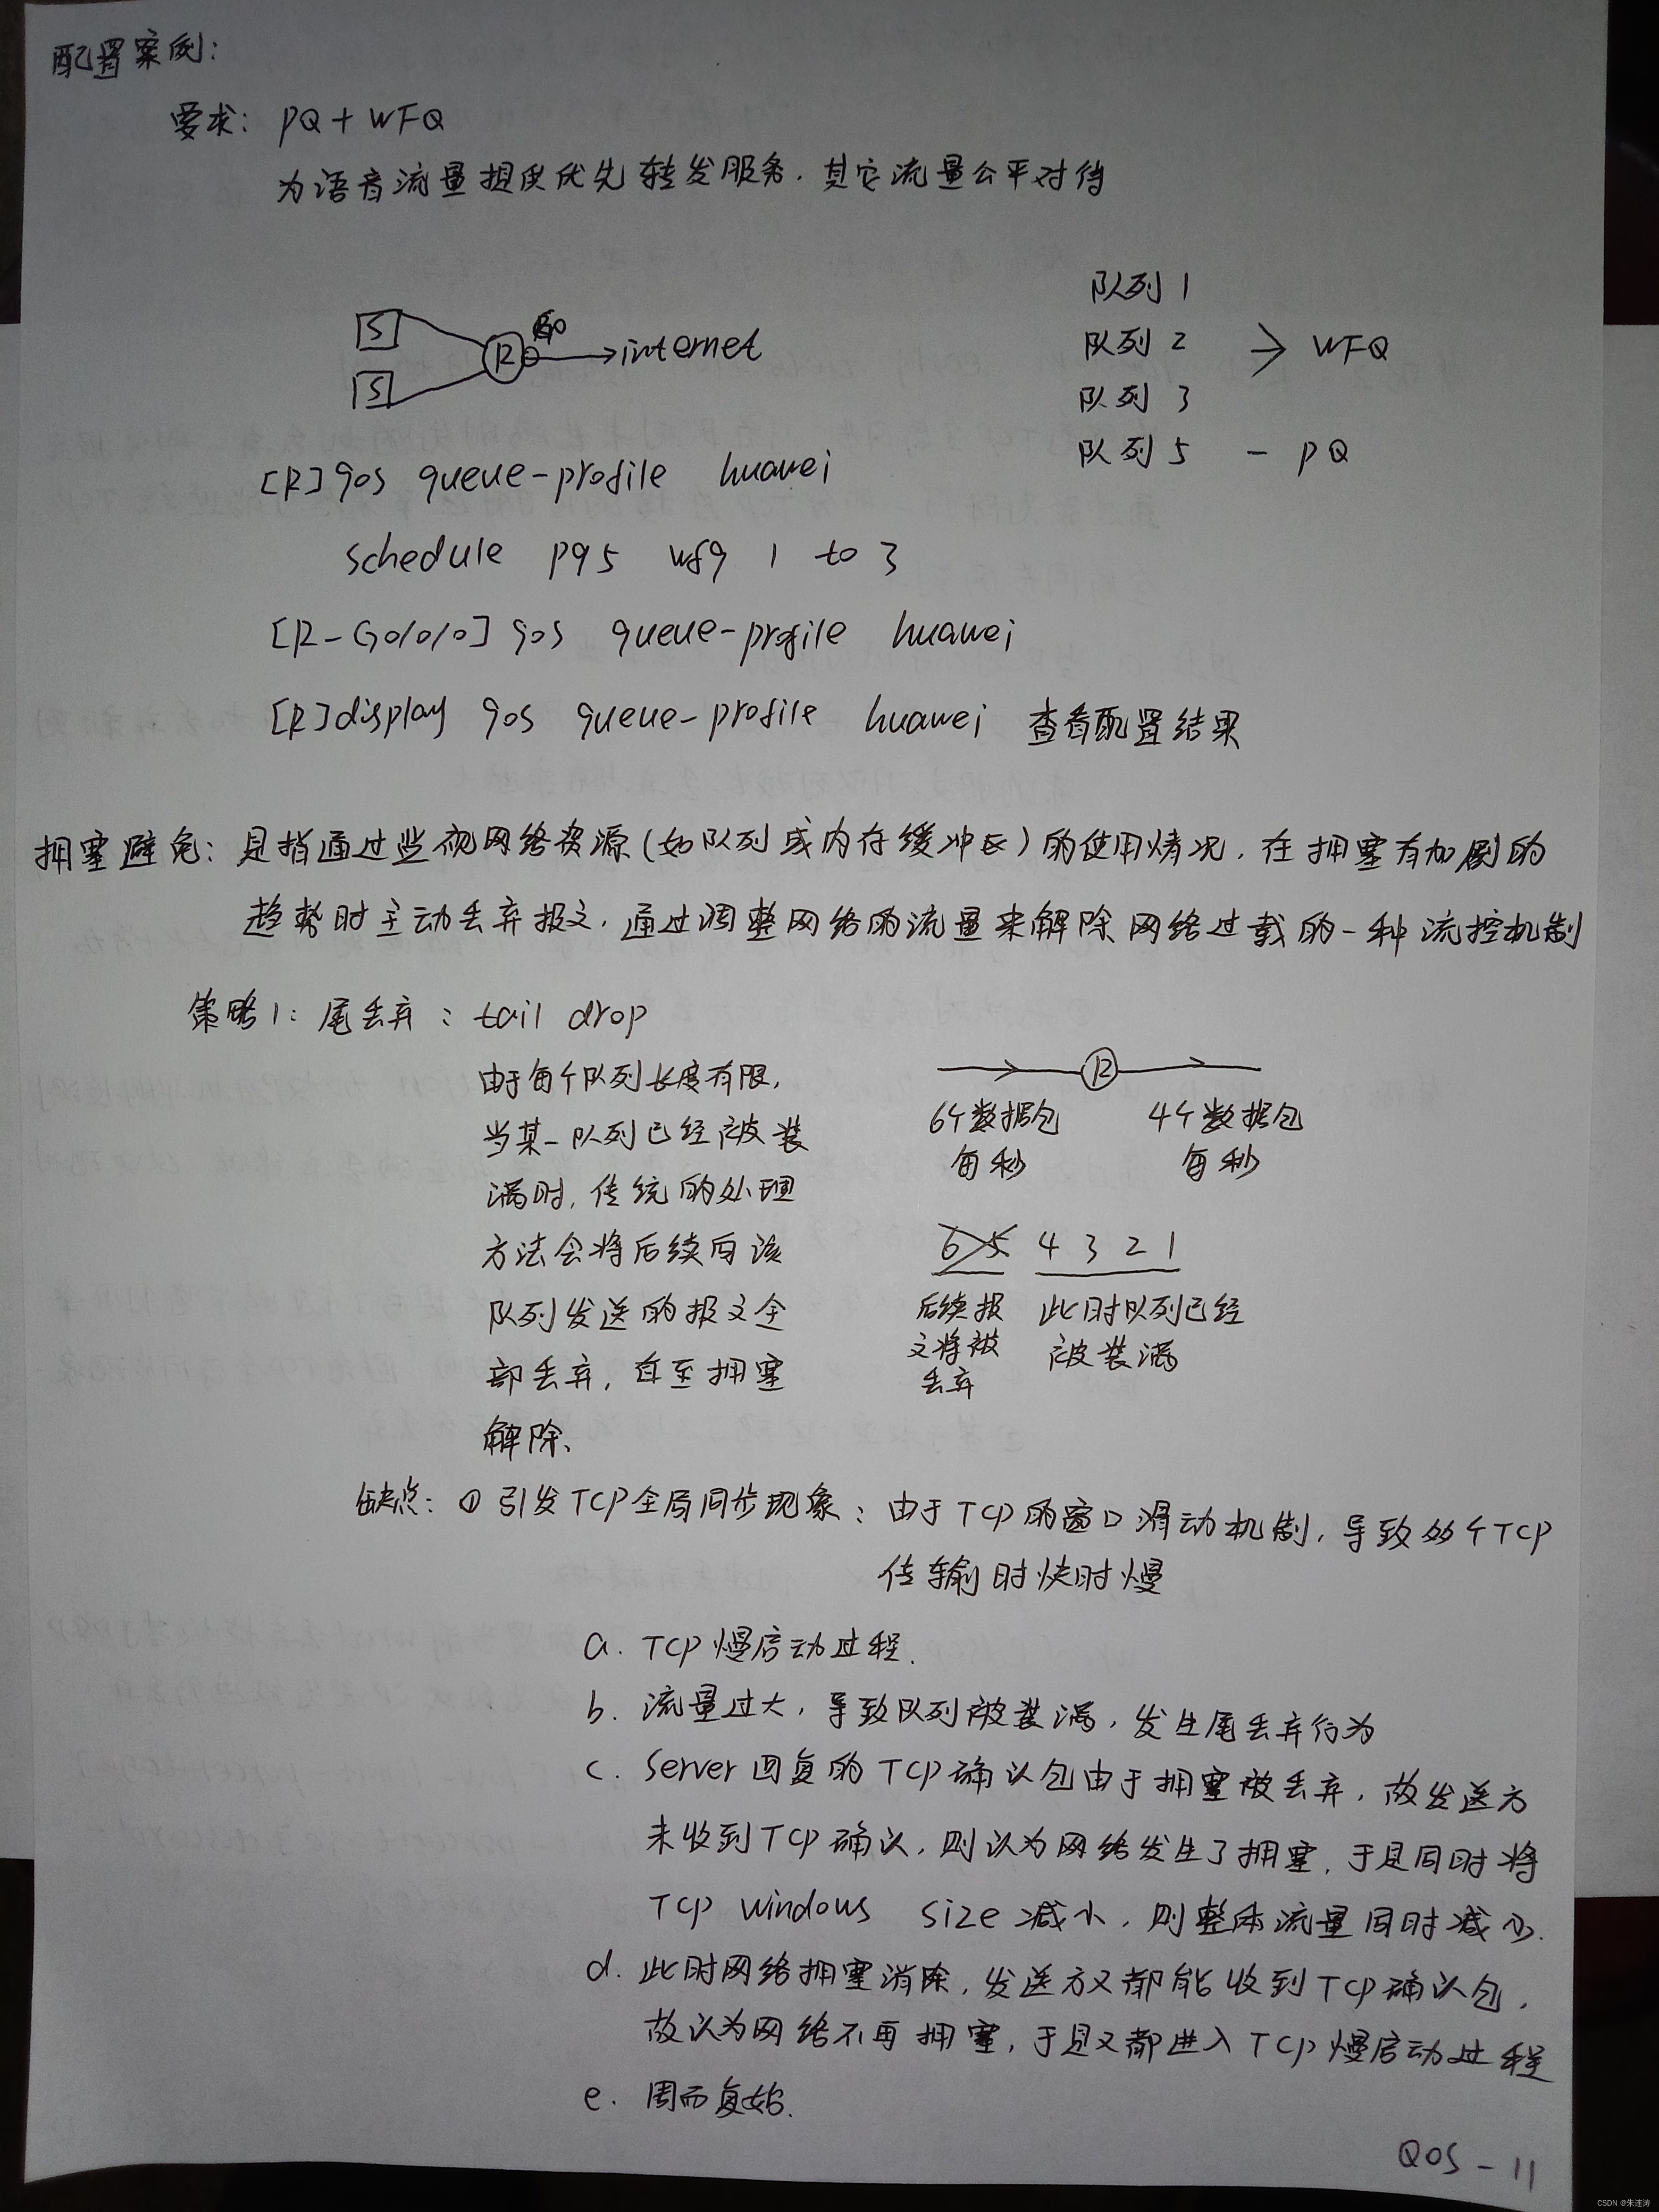 配置案例:
要求: PQ + WFQ
为语音流量提供优先转发服务，其它流量公平对待
队列 1
队列 2 → WFQ
队列 3
队列 5 - PQ
S
S
R
internet
[R] qos queue-profile huawei
schedule pq 5 wfq 1 to 3
[R-G0/0/0] qos queue-profile huawei
[R] display qos queue-profile huawei 查看配置结果
拥塞避免: 是指通过监视网络资源(如队列或内存缓冲区)的使用情况，在拥塞有加剧的
趋势时主动丢弃报文，通过调整网络的流量来解除网络过载的一种流控机制
策略1: 尾丢弃: tail drop
由于每个队列长度有限，
当某一队列已经被装
满时，传统的处理
方法会将后续向该
队列发送的报文全
部丢弃，直至拥塞
解除、
R
6个数据包 4个数据包
每秒 每秒
6 5 4 3 2 1
后续报
文将被
丢弃
此时队列已经
被装满
缺点: ① 引发TCP全局同步现象: 由于TCP的窗口滑动机制，导致多个TCP
传输时快时慢
a. TCP慢启动过程.
b. 流量过大，导致队列被装满，发生尾丢弃行为
c. Server回复的TCP确认包由于拥塞被丢弃，故发送方
未收到TCP确认，则认为网络发生了拥塞，于是同时将
TCP windows size减小，则整体流量同时减小.
d. 此时网络拥塞消除，发送方又都能收到TCP确认包，
故认为网络不再拥塞，于是又都进入TCP慢启动过程
e. 周而复始.
QOS - 11
CSDN @朱连涛